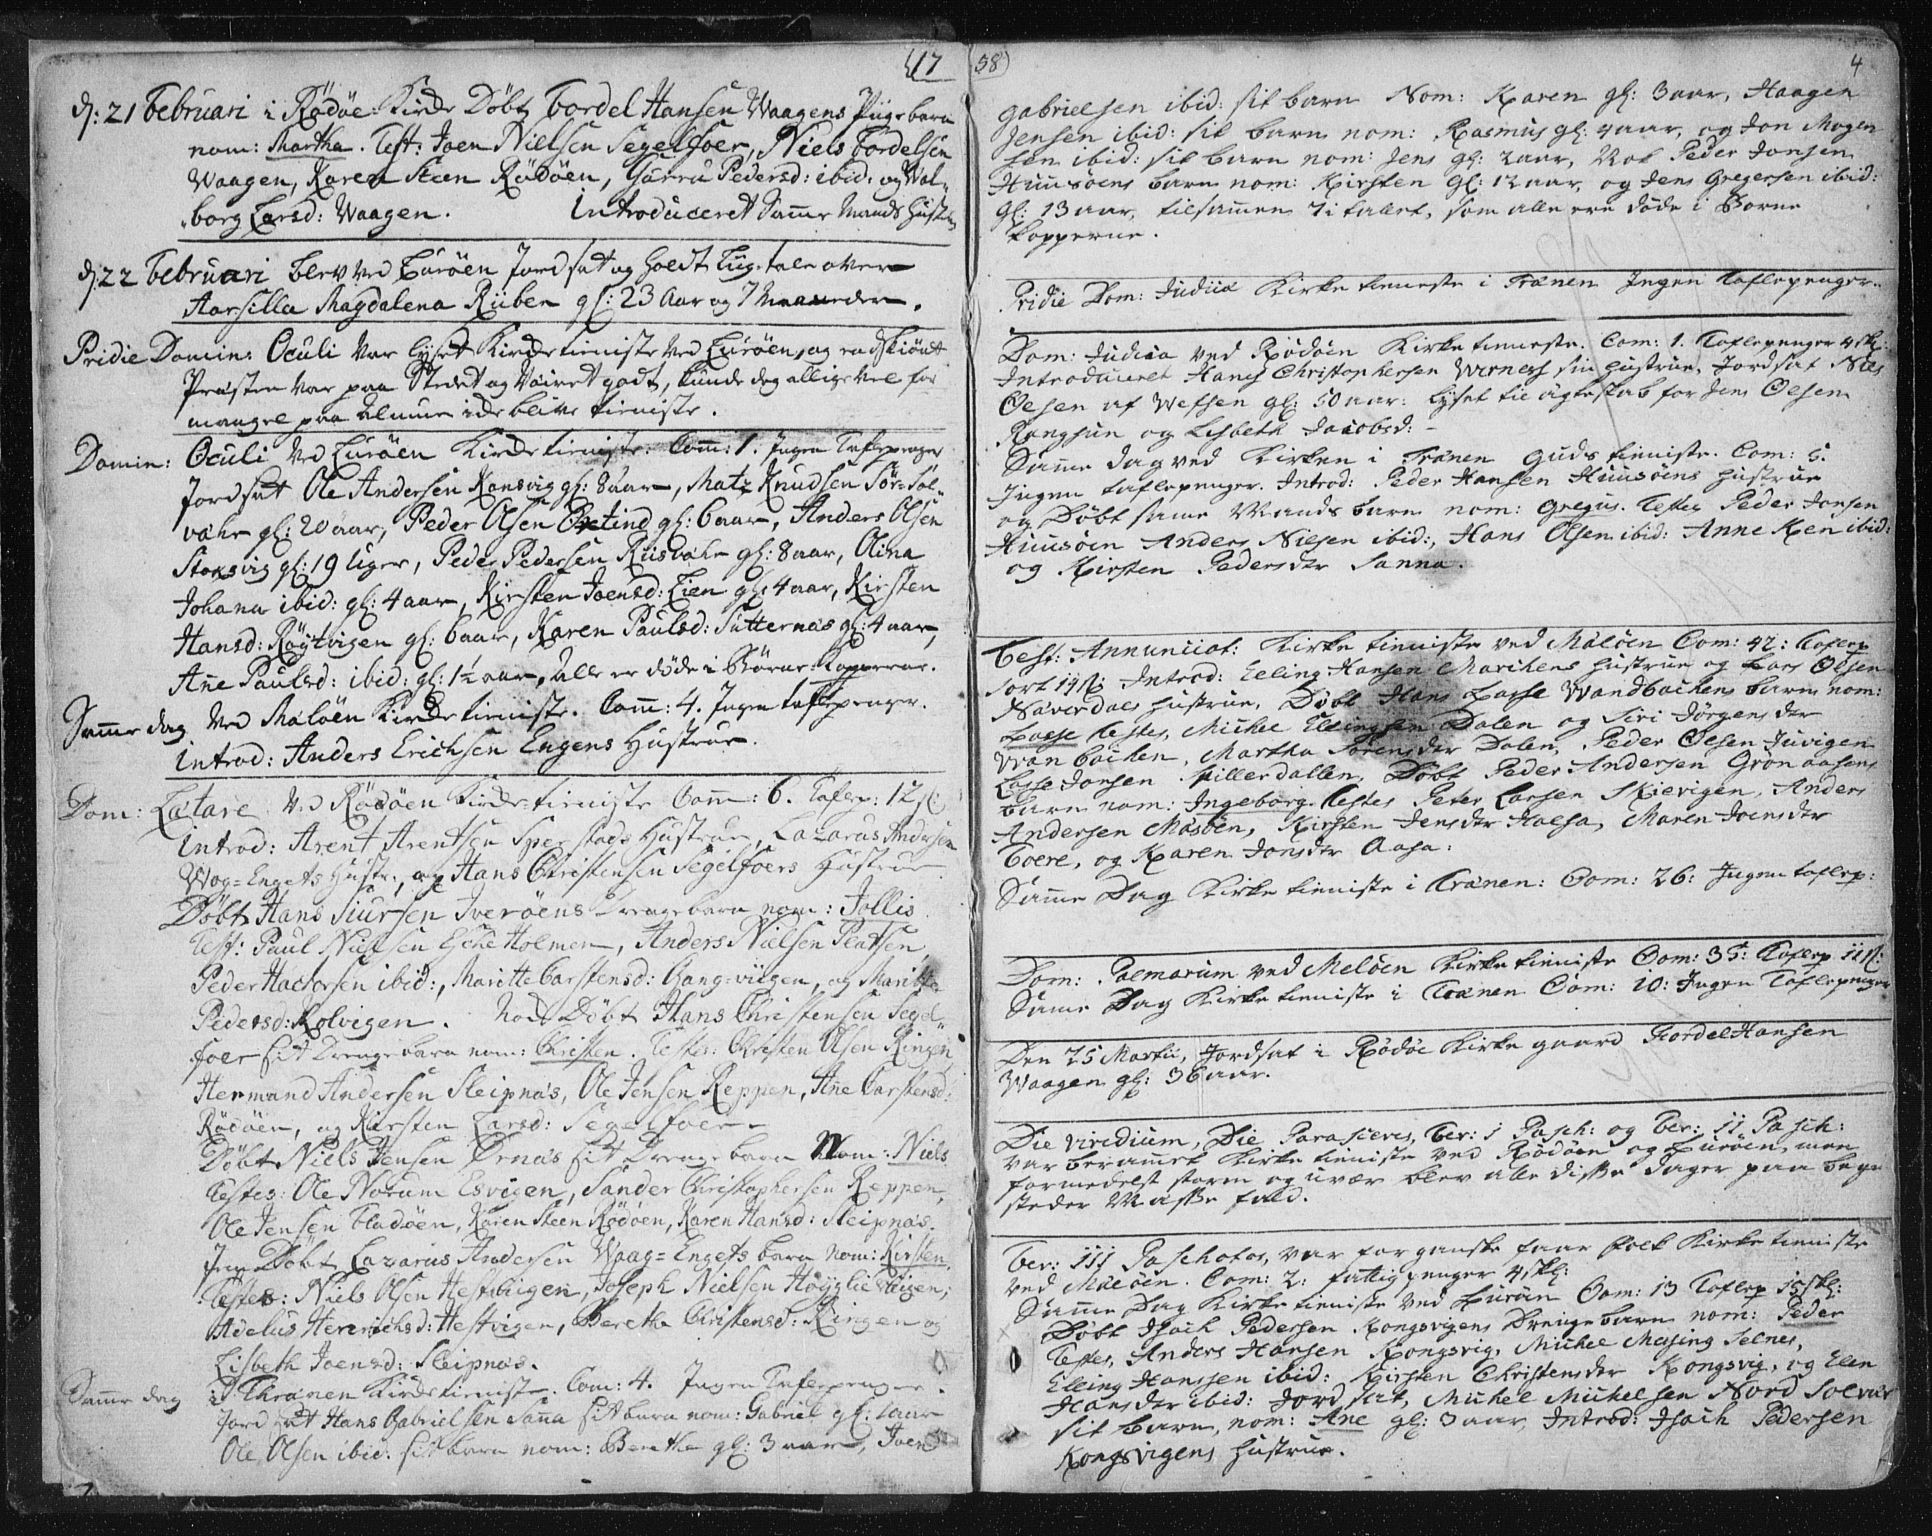 17
d: 21 Februari i Rödöe Kirke Döbt Tordel Hansen Waagens Piigebarn
nom: Martha. Test: Joen Nielsen Segelfoer, Niels Tordelsen
Waagen, Karen Steen Rödöen, Gurru Pedersd: ibid: og Wol-
borg Larsd: Waagen. Introduceret Samme Mands Hustr
d: 22 Februari blev ved Luröen Jordsat og holdt Liigtale over
Aarsilla Magdalena Ruben gl: 23 Aar og 7 Maaneder.
Pridie Domin: Oculi var lyset Kirketieniste ved Luröen, og endskiönt
Præsten var paa Stedet og Væiret godt, kunde dog alligevel for
mangel paa Almue icke blive tieniste.
Domin: Oculi ved Luröen Kirketieniste. Com: 1. Ingen Taflepenger
Jordsat Ole Andersen Konsvig gl: 8 aar, Matz Knudsen Sör-Sol-
vahr gl: 20 aar, Peder Olsen Oxtind gl: 6 aar, Anders Olsen
Stoxsvig gl: 19 Uger, Peder Pedersen Riisvahr gl: 8 aar, Olina
Johana ibid: gl: 4 aar, Kirsten Joensd: Lien gl: 4 aar, Kirsten
Hansd: Röytvigen gl: 6 aar, Karen Paulsd: Sutternæs gl: 4 aar,
Ane Paulsd: ibid: gl: 1½ aar, Alle er döde i Börne-Kopperne.
Samme dag ved Melöen Kirketieniste. Com: 4. Ingen taflepenger.
Introd: Anders Erichsen Engens Hustrue.
Dom: Lætare ved Rödöen Kirke-tieniste Com: 6. Taflep: 12 s:
Introd: Arent Arentsen Spex stads Hustrue, Lazarus Andersen
Wog-Engets Hustr:, og Hans Christensen Segelfoers Hustrue
Döbt Hans Siursen Jveröens Drengebarn nom: Jollis
Test: Paul Nielsen Eskeholmen, Anders Nielsen Platsen
Peder Hactorsen ibid:, Maritte Carstensd: Gangviigen, og Maritte
Pedersd: Kolvigen. Nock Döbt Hans Christensen Segel-
foer sit Drengebarn nom: Christen. Testes: Christen Olsen Ringen
Hermand Andersen Sleipnæs, Ole Jensen Reppen, Ane Carstensd:
Rödöen, og Kirsten Larsd: Segelfoer.
Döbt Niels Jensen Örnæs sit Drenge barn Nom: Niels
Testes: Ole Norum Esvigen, Sander Christophersen Reppen,
Ole Jensen Fladöen, Karen Steen Rödöen, Karen Hansd: Sleipnæs.
Jtem Döbt Lazarus Andersen Waag-Engets barn nom: Kirsten
Testes: Niels Olsen Hestvigen, Joseph Nielsen Höyglievigen,
Adelus Henrichsd: Hestvigen, Berethe Christensd: Ringen og
Lisbeth Joensd: Sleipnæs.
Samme dag i Thrænen Kirketieniste. Com: 4. Ingen Taflepenger.
Jordsat Hans Gabrielsen Sanna sit barn nom: Gabriel gl: 1 aar
Ole Olsen ibid: sit barn nom: Berethe gl: 3 aar, Joen
58
4
Gabrielsen ibid: sit barn Nom: Karen gl: 3 aar, Haagen
Jensen ibid: sit barn nom: Rasmus gl: 4 aar, og Jon Mogen
sen ibid: sit barn nom: Jens gl: 2 aar, Nok Peder Jonsen
Huusöens barn nom: Kirsten gl: 12 aar, og Jens Gregersen ibid:
gl: 13 aar, tilsamen 7 i tallet, som alle ere döde i Börne
kopperne.
Pridie Dom: Judica Kirke tieneste i Trænen Ingen Taflepenger.
Dom: Judica ved Rödöen Kirke tieneste. Com: 1. Taflepenger 4 sk:
Introduceret Hans Christophersen Værnes sin hustrue, Jordsat Niels
Olsen af Wefsen gl: 50 aar: lyset til ægteskab for Jens Olsen
Rangsun og Lisbeth Jacobsd: -
Samme dag ved Kirken i Trænen Guds tieniste. Com: 5.
Ingen taflepenger. Introd: Peder Hansen Huusöens hustrue
og Döbt same Mands barn nom: Gregus. Testes Peder Jonsen
Huusöen Anders Nilsen ibid:, Hans Olsen ibid: Anne Ken ibid:
og Kirsten Pedersdr Sanna.
Fest: Annunciat: Kirke tieniste ved Melöen Com: 42: Taflep
sort 19 s: Introd: Elling Hansen Marchens hustrue og Lars Olsen
Næverdals hustrue, Döbt Hans Lasse Wandbachens barn nom:
Lasse testes, Michel Ellingsen Dalen og Siri Jörgensdr
Wanbachen, Martha Sörensdr Dalen, Peder Olsen Juvigen
Lasse Jonsen Spillerdallen, Döbt Peder Andersen Gronaasens
barn nom: Ingeborg. testes Peter Larsen Skiervigen, Anders
Andersen Mosöen, Kirsten Jensdr Halsa, Maren Joensdr
Foere, og Karen Jonsdr Aasa:
Same Dag Kirke tieniste i Trænen: Com: 26: Ingen taflep:
Dom: Palmarum ved Melöen Kirke tieniste Com: 35: Taflep 11 s:
Same Dag Kirke tieniste i Trænen Com: 10: Ingen Taflepenger
Den 25 Martii, Jordsat i Rödöe Kirke gaard Tordel Hansen
Waagen gl: 36 aar.
Die Viredium, Die Parasceves, Fer: I Pasch: og Fer: II Pasch:
var beramet Kirke tieniste ved Rödöen og Luröen, men
formedelst storm og uvær blev alle disse dager paa begge
steder Messe fald.
Fer: III Paschatos, var for ganske faae folk Kirke tieniste
ved Melöen. Com: 2: fattigpenger 4 sk:
Same Dag Kirke tieniste ved Luröen Com: 13 Taflep 15 sk:
Döbt Isach Pedersen Kongsvigens Drengebarn nom: Peder
Testes, Anders Hansen Kongsvig, Michel Mesing Selnes,
Elling Hanssen ibid: Kirsten Christensdr Kongsvig, og Elen
Hansdr ibid: Jordsat, Michel Michelsen Nord Solvær
sit barn, nom: Ane gl: 3 aar, Introd: Isach Pedersen
Kongsvigens hustrue.